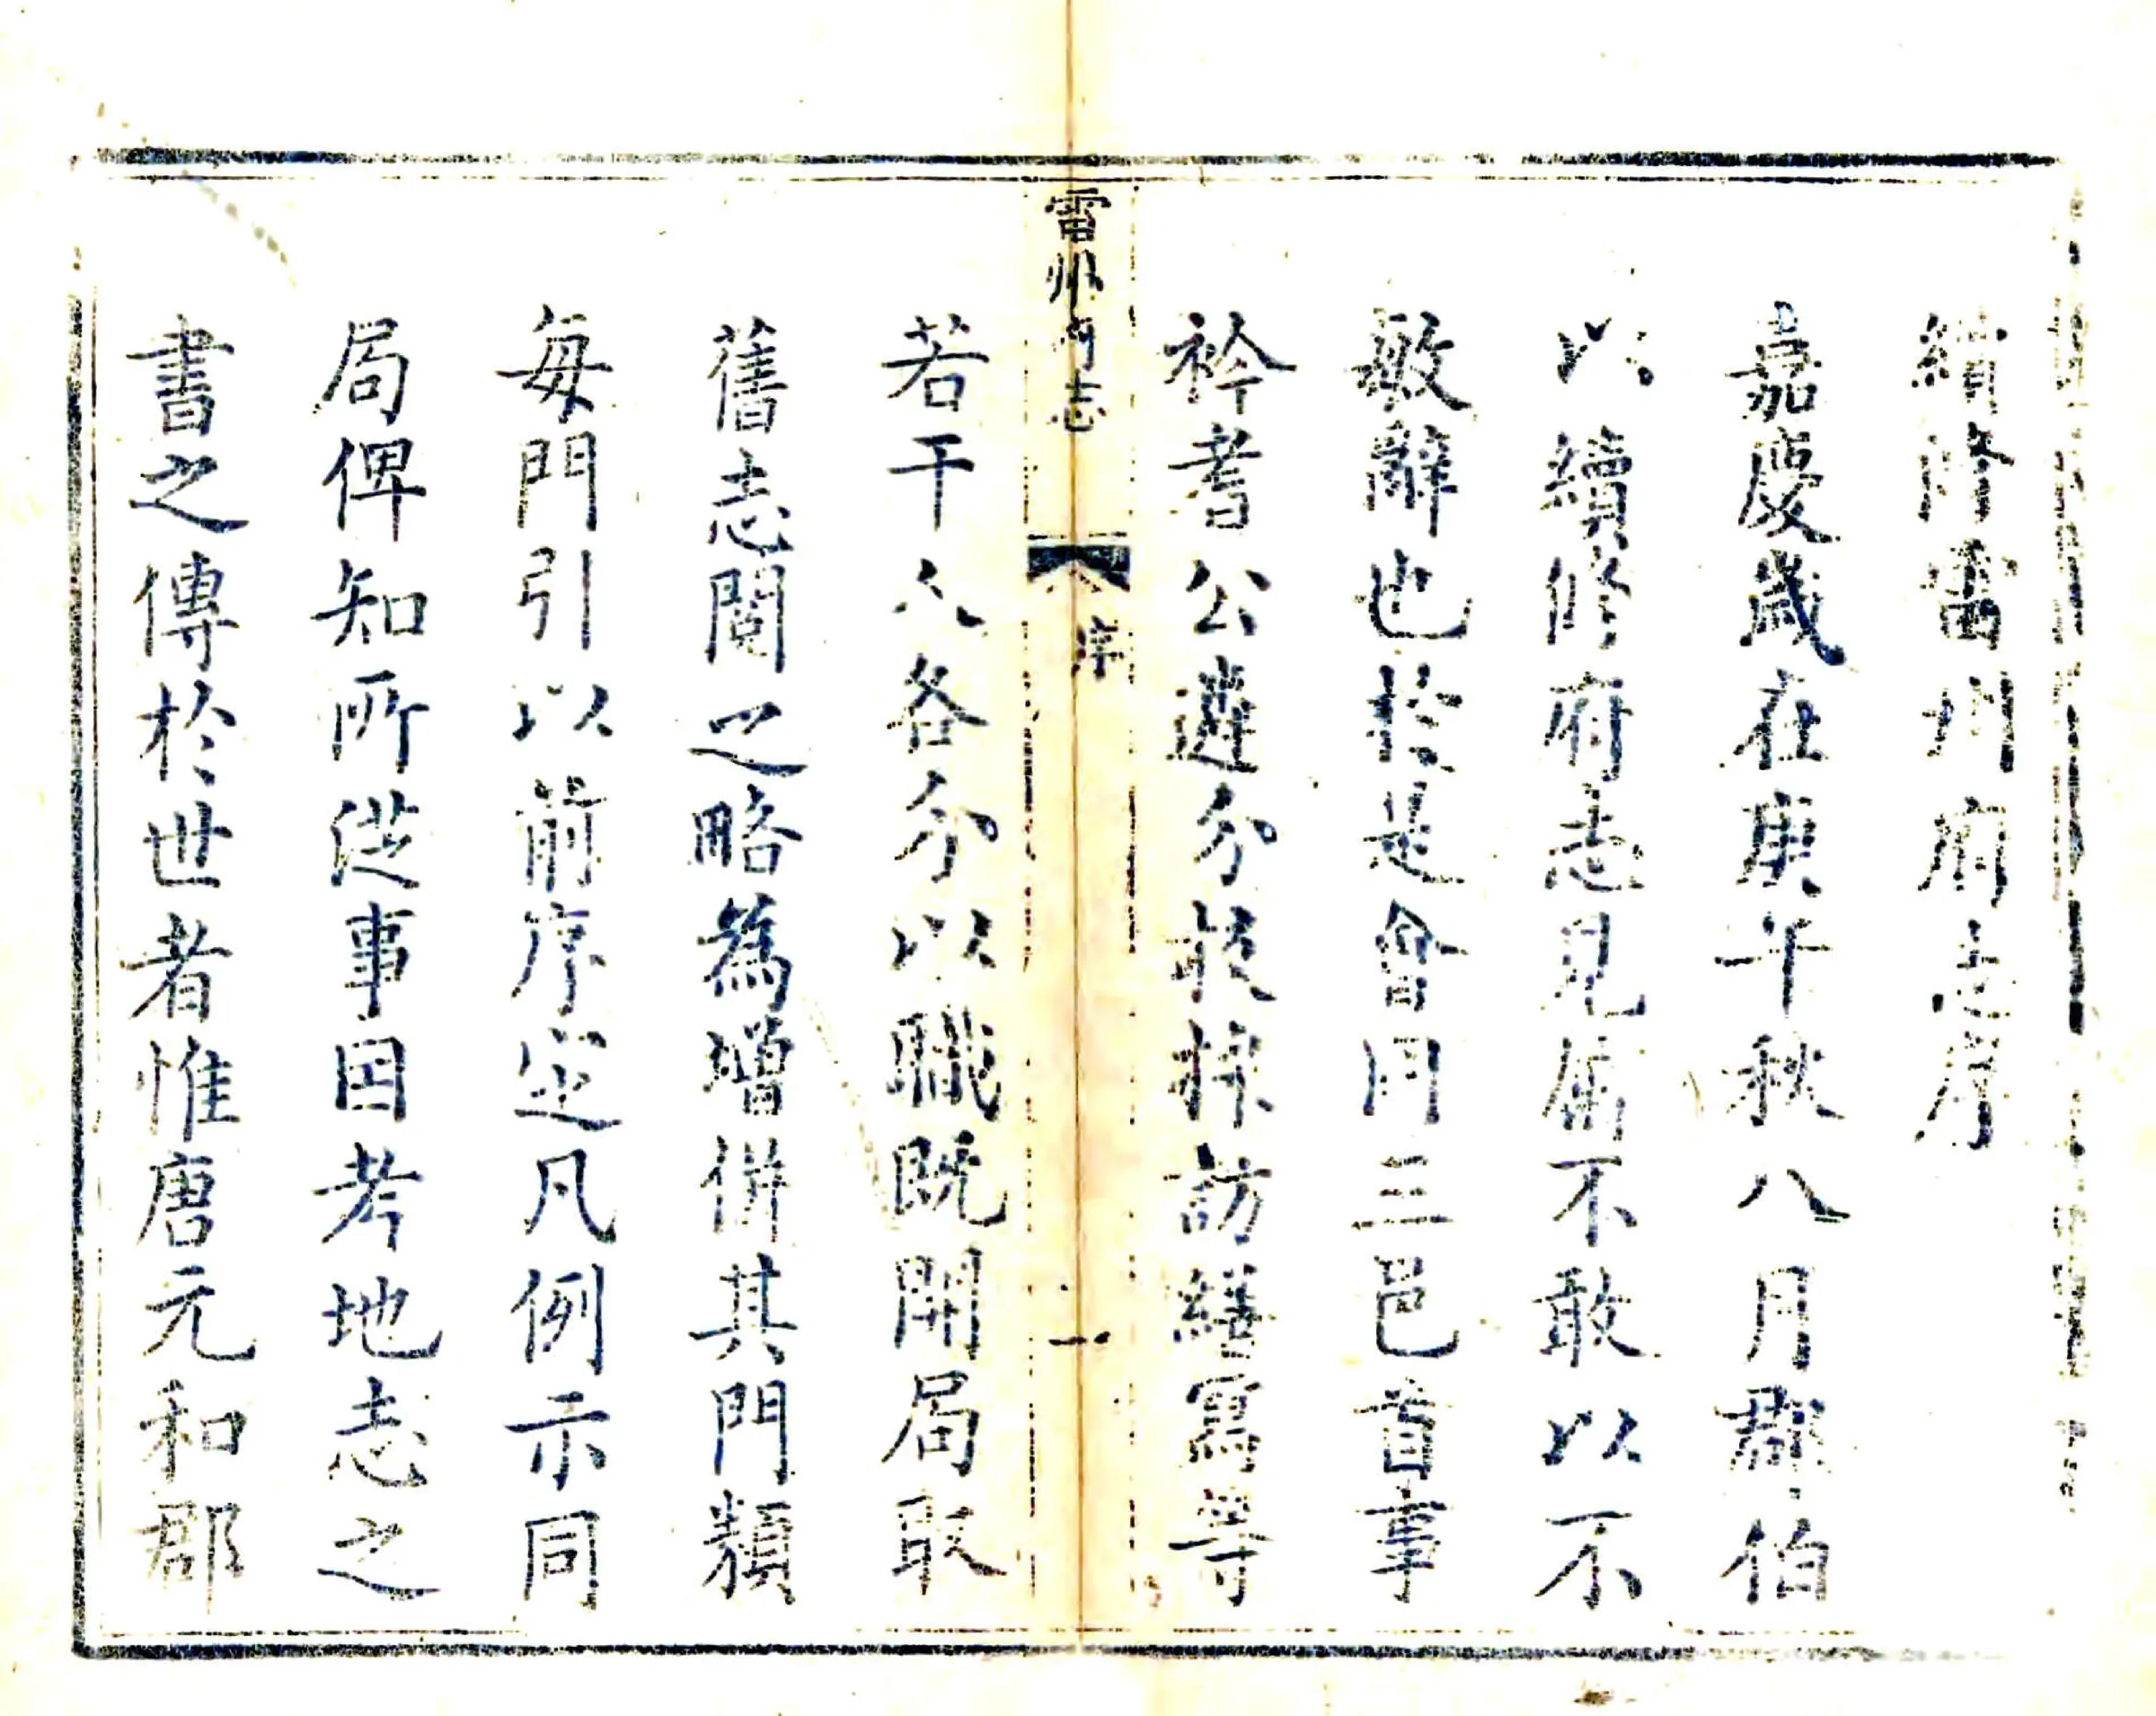 續修雷州府志序
嘉慶歲在庚午秋八月郡伯
以續修府志見屬不敢以不
敏辭也於是會同三邑首事
衿耆公遴分校採訪繕寫等
雷州府志
序
一
若干人各分以職既開局取
舊志閱之略為增併其門類
每門引以前序定凡例示同
局俾知所從事因考地志之
書之傳於世者惟唐元和郡